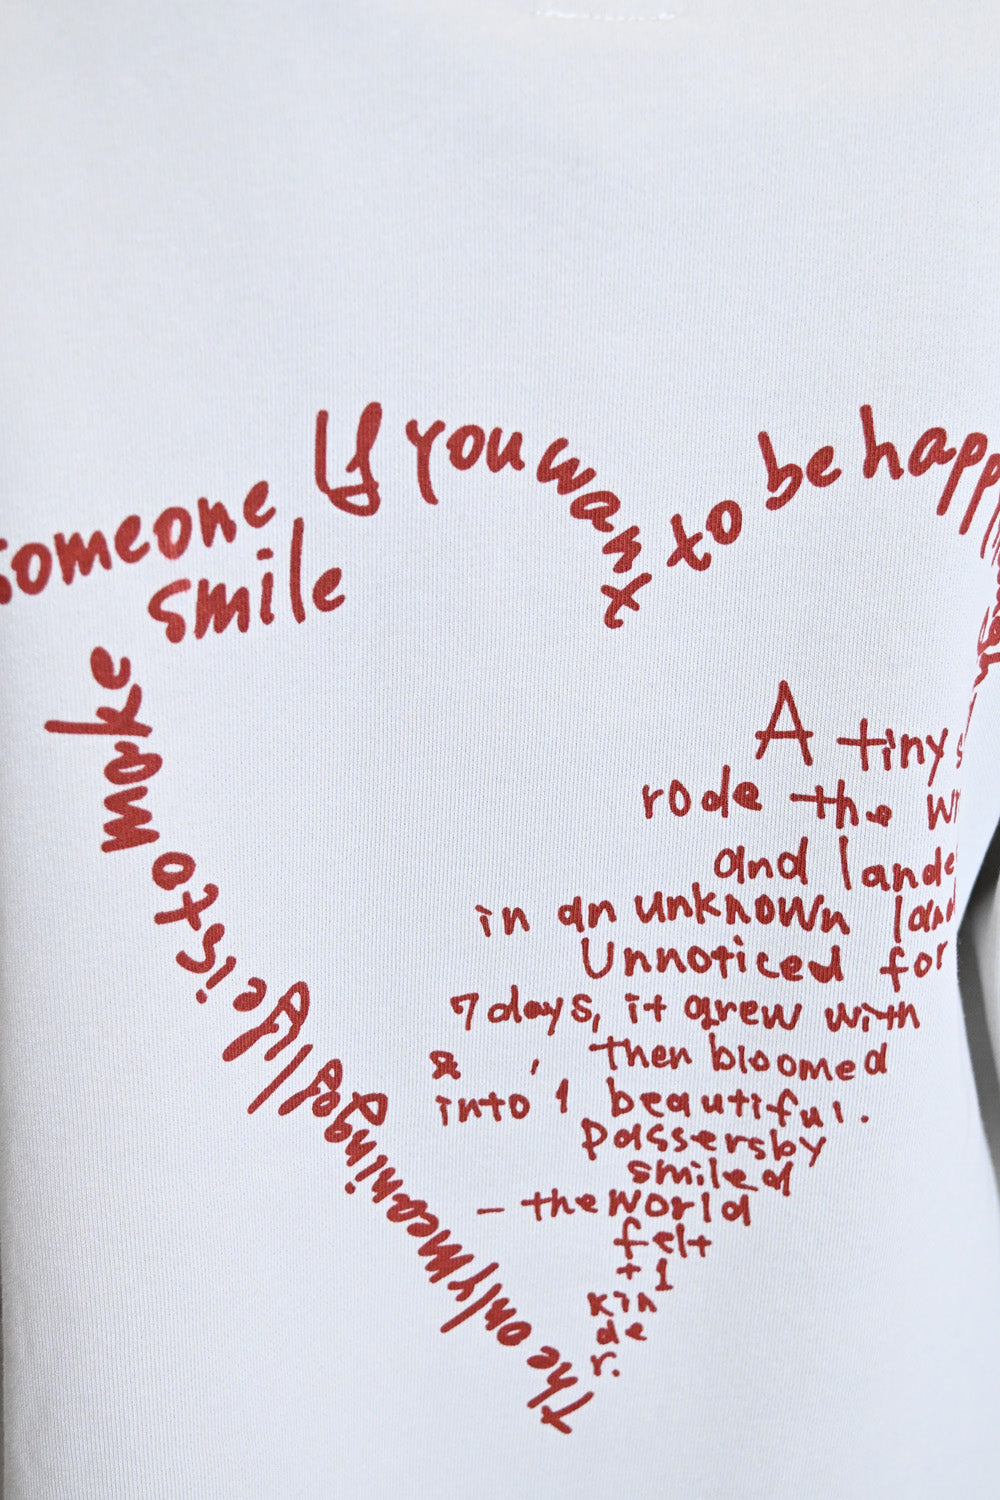 If you want to be happ
The only meaning of life is to make
someone
smile
A tiny
rode the
and lande
in an unknown land
Unnoticed for
7 days, it grew with
& , then bloomed
into 1 beautiful.
passersby
smiled
— the world
felt
+1
kin
de
r.